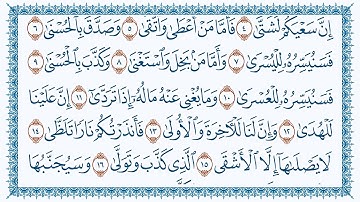 إِنَّ سَعْيَكُمْ لَشَتَّىٰ ٤ فَأَمَّا مَنْ أَعْطَىٰ وَاتَّقَىٰ ٥ وَصَدَّقَ بِالْحُسْنَىٰ ٦
فَسَنُيَسِّرُهُ لِلْيُسْرَىٰ ٧ وَأَمَّا مَنْ بَخِلَ وَاسْتَغْنَىٰ ٨ وَكَذَّبَ بِالْحُسْنَىٰ ٩
فَسَنُيَسِّرُهُ لِلْعُسْرَىٰ ١٠ وَمَا يُغْنِي عَنْهُ مَالُهُ إِذَا تَرَدَّىٰ ١١ إِنَّ عَلَيْنَا
لَلْهُدَىٰ ١٢ وَإِنَّ لَنَا لَلْآخِرَةَ وَالْأُولَىٰ ١٣ فَأَنْذَرْتُكُمْ نَارًا تَلَظَّىٰ ١٤
لَا يَصْلَاهَا إِلَّا الْأَشْقَى ١٥ الَّذِي كَذَّبَ وَتَوَلَّىٰ ١٦ وَسَيُجَنَّبُهَا